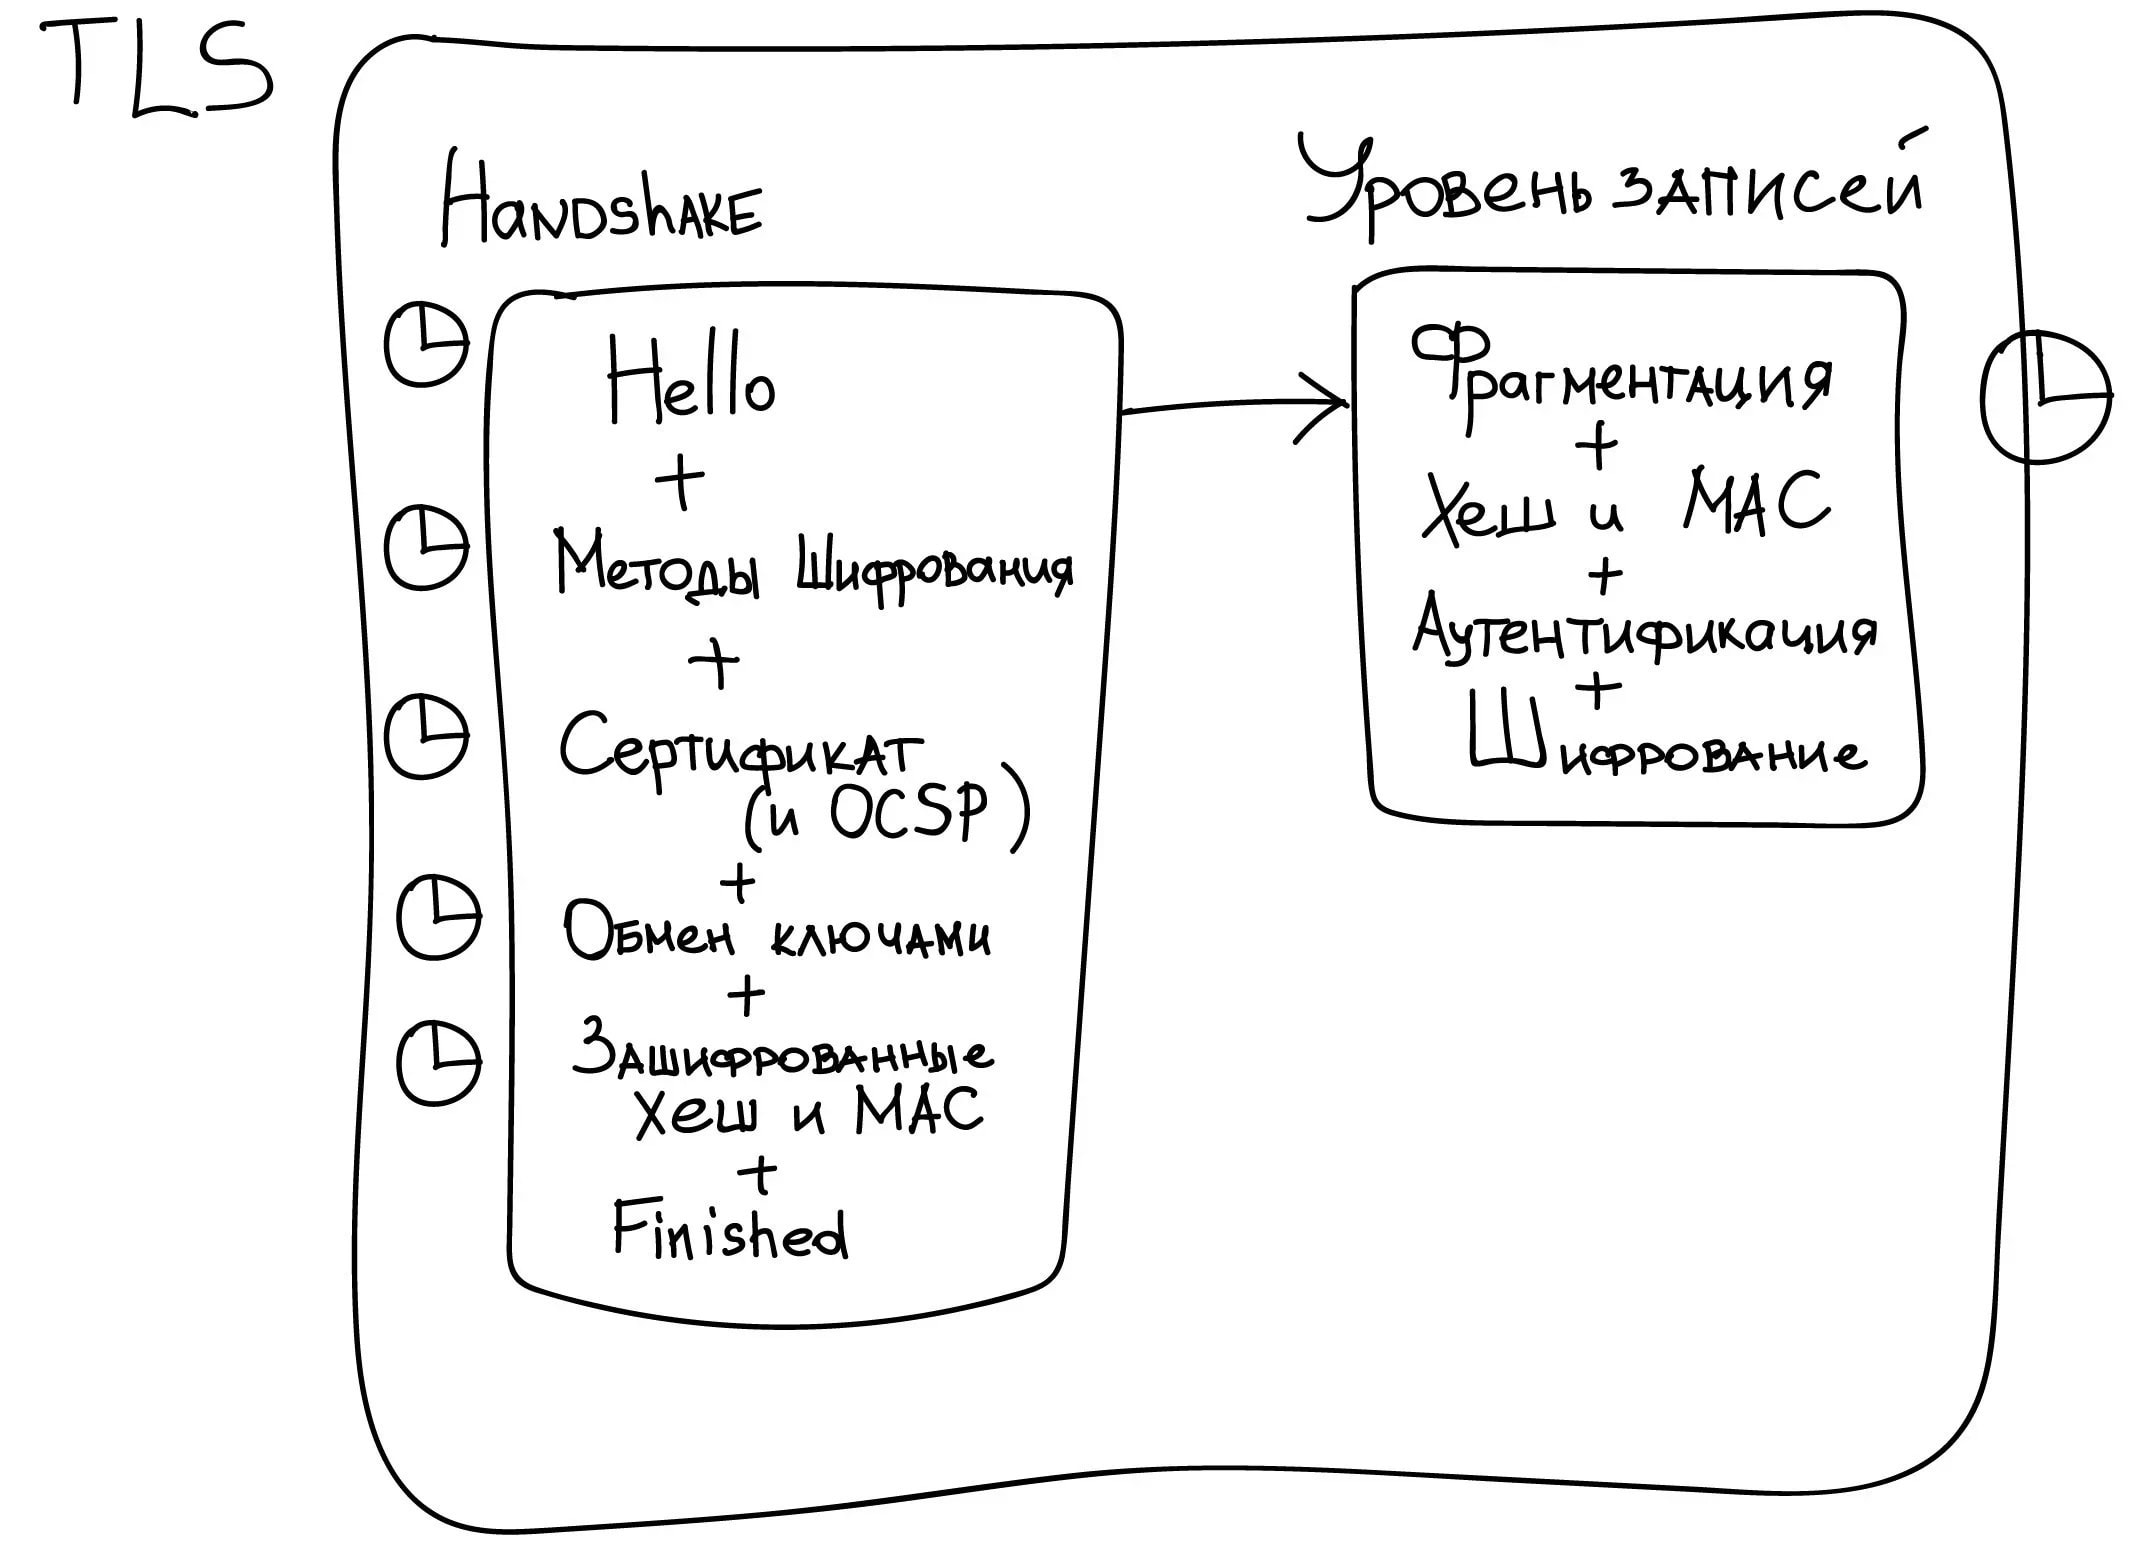 TLS
Handshake
Hello
+
Методы Шифрования
+
Сертификат
(и OCSP)
+
Обмен ключами
+
Зашифрованные
Хеш и MAC
+
Finished
Уровень записей
Фрагментация
+
Хеш и MAC
+
Аутентификация
+
Шифрование